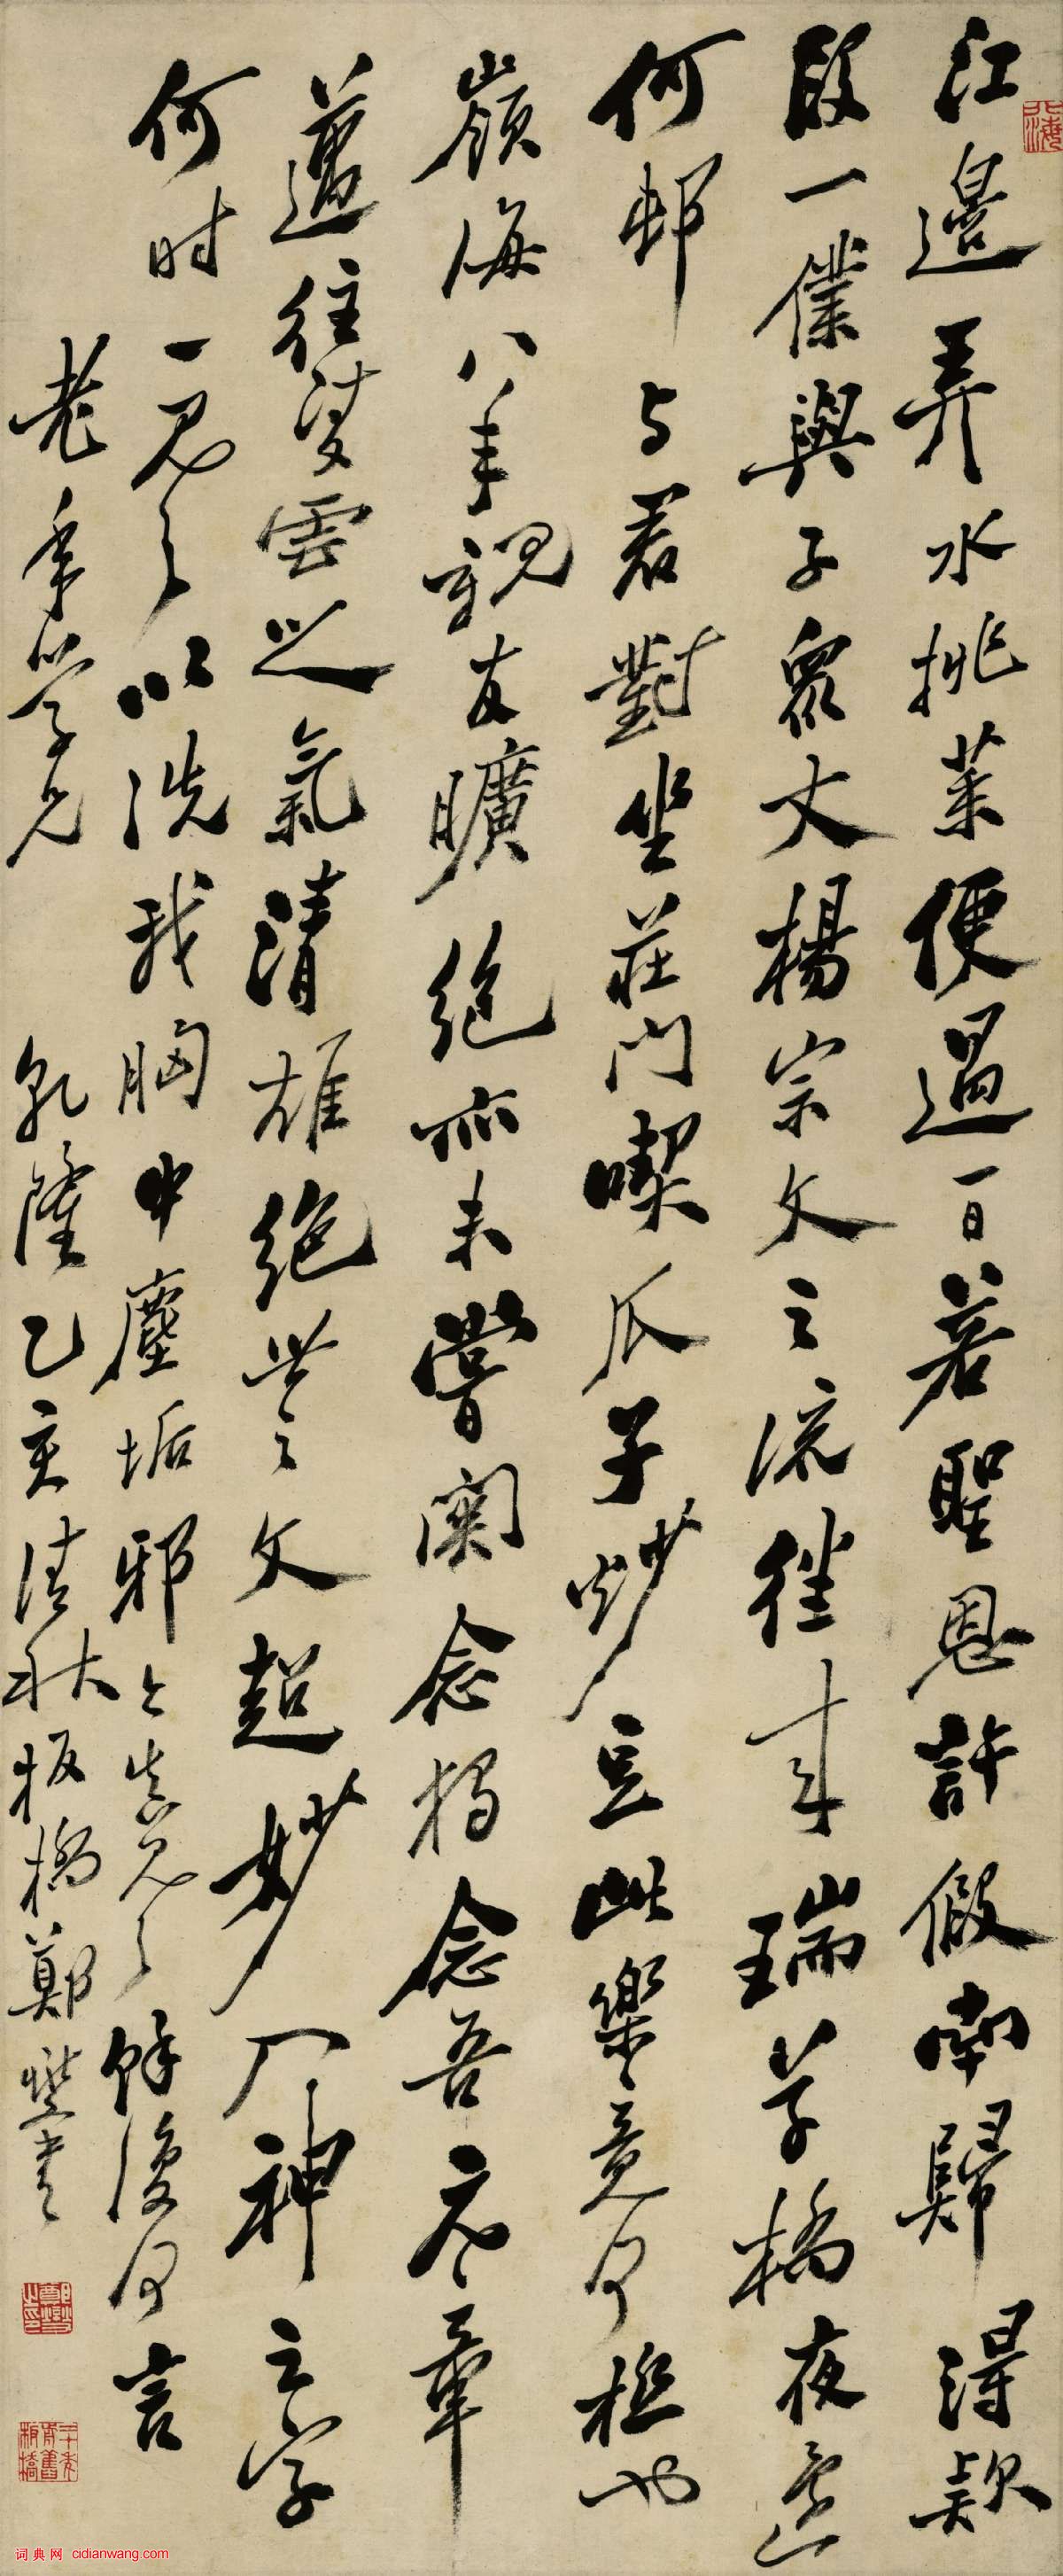 江邊弄水挑菜便過一日若聖恩許假南歸得款
段一僕與子衆丈楊宗文之流往來瑞草橋夜還
何邨与君對坐莊門喫瓜子炒豆此樂竟何極也
嶺海八年親友曠絕亦未嘗関念獨念吾元章
邁往凌雲之氣清雄絕世之文超妙入神之字
何时一見之以洗我胸中塵垢邪今真見之餘復何言
老年學兄 乾隆乙亥清秋板橋鄭燮書
詞典网 cidianwang.com